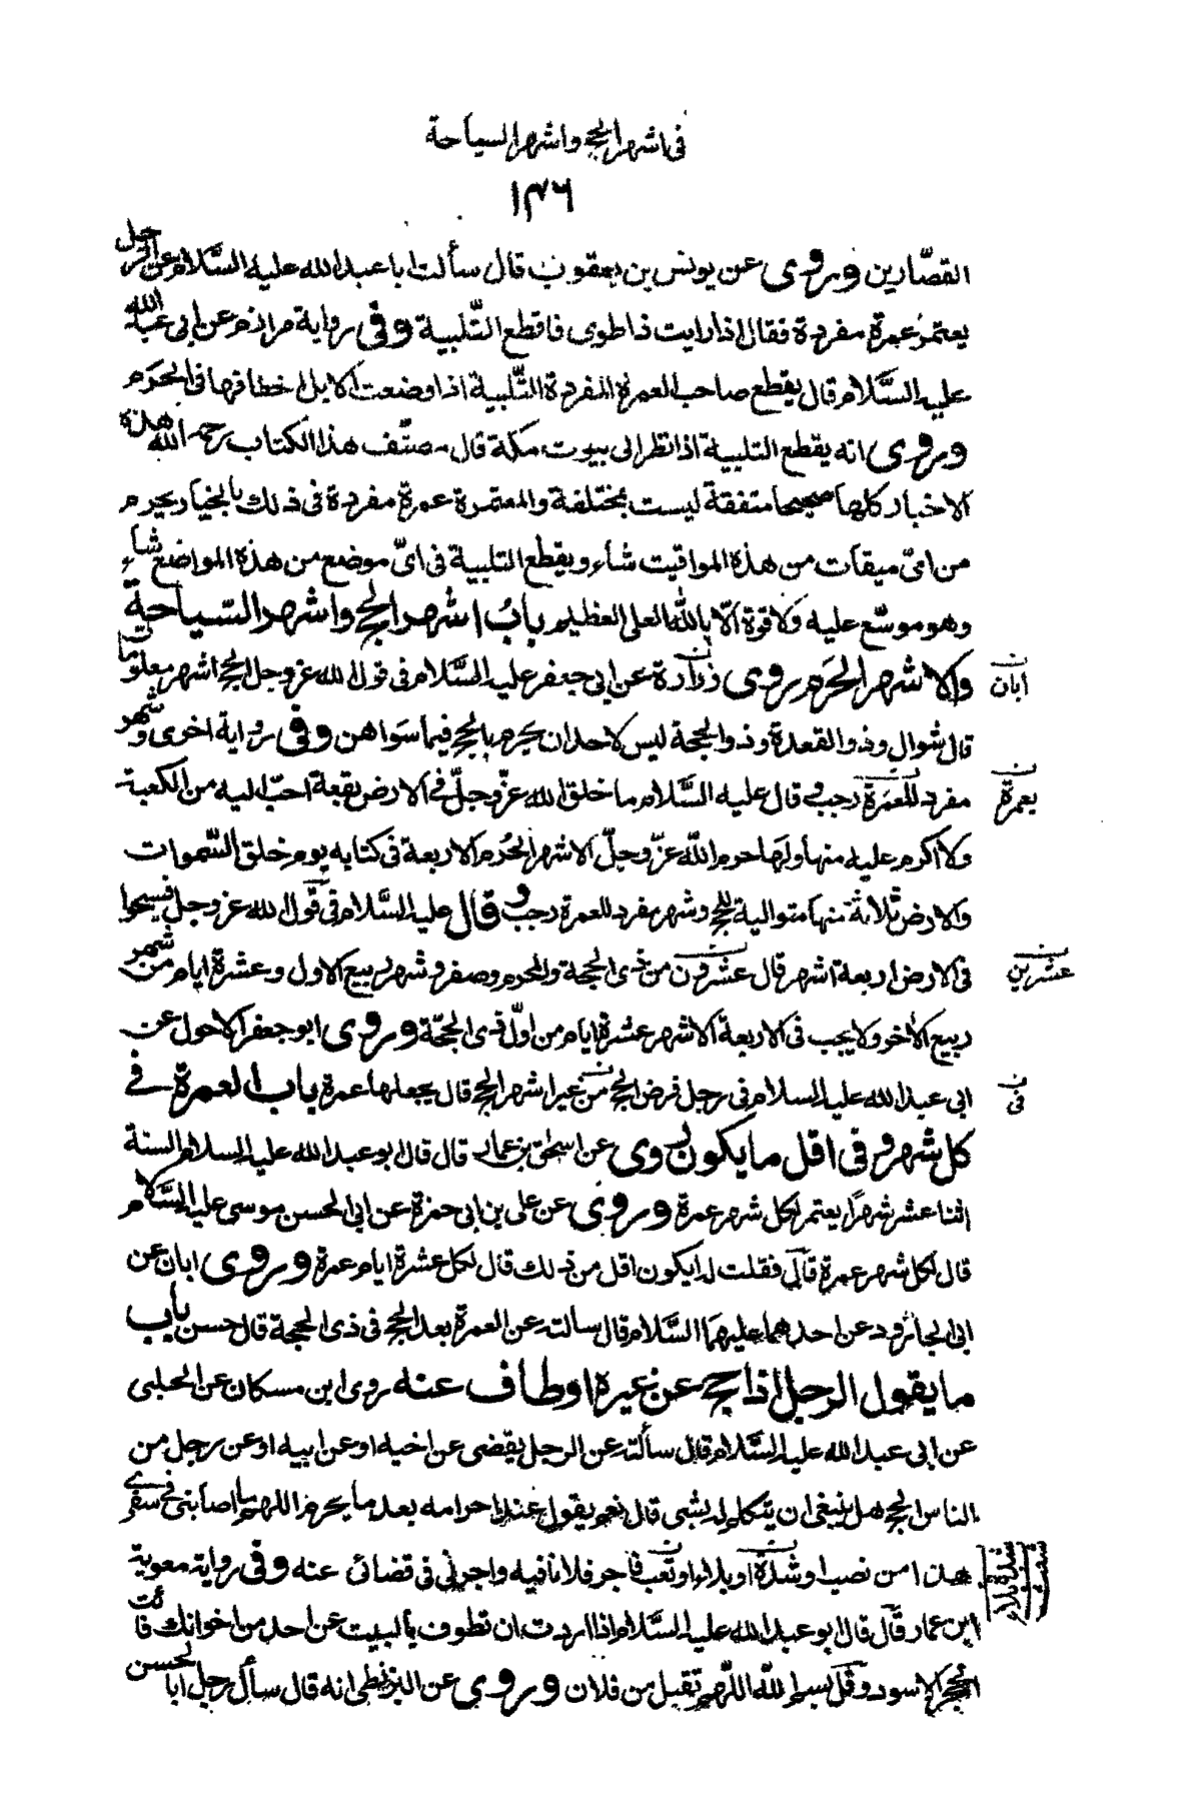 فى اشهر الحج واشهر السياحة
١٣٦
القصّارين وروى عن يونس بن يعقوب قال سألت ابا عبد الله عليه السَّلام عن الرجل
يعتمر عمرة مفردة فقال اذا رايت ذا طوى فاقطع التّلبية وفى رواية مرازم عن ابى عبد الله
عليه السَّلام قال يقطع صاحب العمرة المفردة التّلبية اذا وضعت الابل اخفافها فى الحرَم
وروى انه يقطع التلبية اذا نظر الى بيوت مكة قال مصنّف هذا الكتاب رحمه الله هذه
الاخبار كلها صحيحة متفقة ليست بمختلفة والمعتمرة عمرة مفردة فى ذلك بالخيار يحرم
من اىّ ميقات من هذه المواقيت شاء ويقطع التلبية فى اىّ موضع من هذه المواضع شاء
وهو موسّع عليه ولا قوة الّا بالله العلى العظيم باب اشهر الحج واشهر السّياحة
والاشهر الحرَم روى زرارة عن ابى جعفر عليه السَّلام فى قول الله عز وجل الحج اشهر معلومات
ابان
قال شوال وذو القعدة وذو الحجة ليس لاحد ان يحرم بالحج فيما سواهن وفى رواية اخرى وشهر
مفرد للعمَرة رجب وقال عليه السَّلام ما خلق الله عزّ وجلّ فى الارض بقعة احبّ اليه من الكعبة
بعمرة
ولا اكرم عليه منها ولها حرم الله عزّ وجلّ الاشهر الحرُم الاربعة فى كتابه يوم خلق السّموات
والارض ثلاثة منها متوالية للحج وشهر مفرد للعمرة رجب وقال عليه السَّلام فى قول الله عز وجل فسيحوا
فى الارض اربعة اشهر قال عشرون من ذى الحجة والمحرم وصفر وشهر ربيع الاول وعشرة ايام من شهر
عشرين
ربيع الاخر ولا يحب فى الاربعة الاشهر عشرة ايام من اوّل ذى الحجّة وروى ابو جعفر الاحول عن
ابى عبد الله عليه السلام فى رجل فرض الحج من غير اشهر الحج قال يجعلها عمرة باب العمرة فى
فى
كل شهر و فى اقل ما يكون روى عن اسحٰق بن عمار قال قال ابو عبد الله عليه السلام السنة
اثنا عشر شهرًا يعتمر لكل شهر عمرة وروى عن على بن ابى حمزة عن ابى الحسن موسى عليه السَّلام
قال لكل شهر عمرة قال فقلت له ايكون اقل من ذلك قال لكل عشرة ايام عمرة وروى ابان عن
ابى الجارود عن احدهما عليهما السَّلام قال سالته عن العمرة بعد الحج فى ذى الحجة قال حسن باب
ما يقول الرجل اذا حج عن غيره او طاف عنه روى ابن مسكان عن الحلبى
عن ابى عبد الله عليه السَّلام قال سألته عن الرجل يقضى عن اخيه او عن ابيه او عن رجل من
الناس الحج هل ينبغى ان يتكلم بشى قال نعم يقول عند احرامه بعد ما يحرم اللهم ما اصابنى فى سفرى
هذا من نصب او شدة او بلاء او تعب فأجر فلانا فيه واجرنى فى قضائى عنه وفى رواية معوية
ابن عمار قال قال ابو عبد الله عليه السَّلام اذا اردت ان تطوف بالبيت عن احد من اخوانك فائت
الحجر الاسود وقل بسم الله اللّهم تقبل من فلان وروى عن البزنطى انه قال سأل رجل ابا الحسن